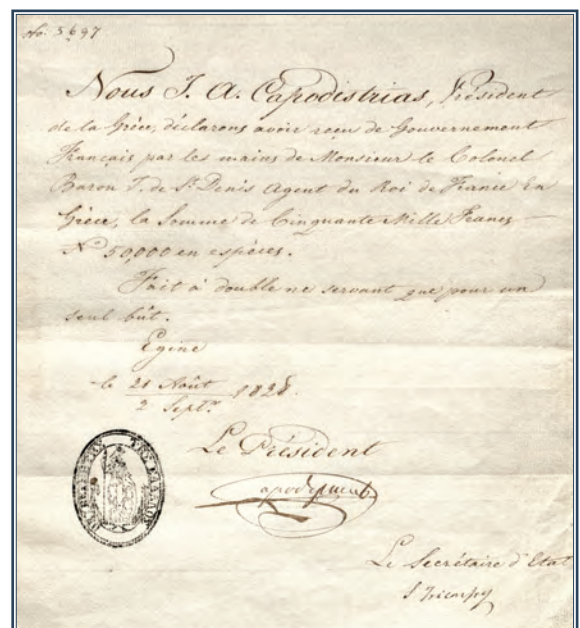 No. 3697
Nous J. A. Capodistrias, Président
de la Grèce, déclarons avoir reçu de Gouvernement
Français par les mains de Monsieur le Colonel
Baron J. de St Denis Agent du Roi de France En
Grèce, la Somme de Cinquante Mille Francs
No 50,000 en espèces.
Fait à double ne servant que pour un
seul bût.
Egine
le 21 Août / 2 Septre 1828.
Le Président
Le Secrétaire d'Etat